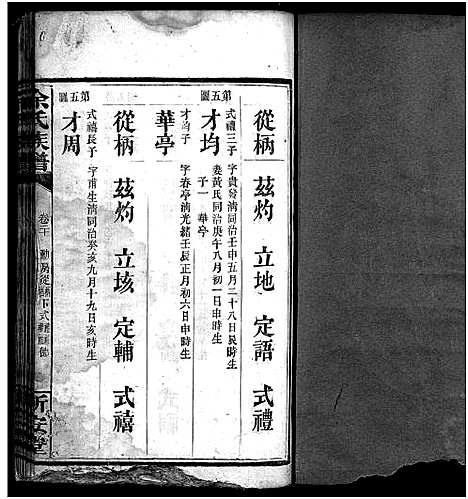 從柄 茲灼 立地 定語 式禮
第五圖
才均
式禮三子 字貴發清同治壬申五月二十八日辰時生
妻黃氏同治庚午八月初一日申時生
子一 華亭
華亭
才均子 字春亭清光緒壬辰正月初六日申時生
從柄 茲灼 立垓 定輔 式禧
第五圖
才周
式禧長子 字甫生清同治癸亥九月十九日亥時生
余氏族譜
卷三十
新安堂